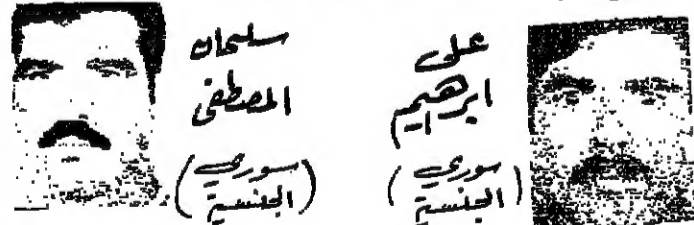 على
ابراهيم
(سوري
الجنسية)
سليمان
المصطفى
(سوري
الجنسية)